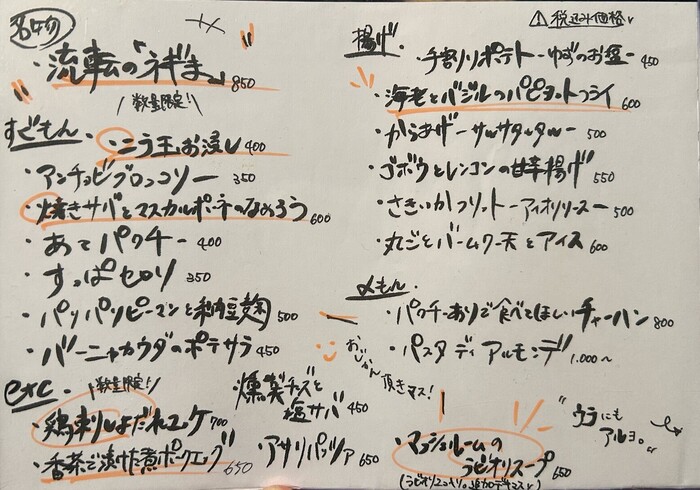 名物
・流転の「うずま」 850
数量限定!
すぐもん
・ニラ玉お浸し 400
・アンチョビブロッコリー 350
・焼きサバとマスカルポーネのなめろう 600
・あてパクチー 400
・すっぱセロリ 350
・パリパリピーマンと納豆麹 500
・バーニャカウダのポテサラ 450
etc
数量限定!
・鶏刺しよだれユッケ 700
・香茶で漬けた煮ポークエッグ 650
・燻製チーズと
塩サバ 450
・アサリパッツァ 650
⚠税込み価格
揚げ
・手割りポテト-ゆずのお塩- 450
・海老とバジルのパピヨットフライ 600
・からあげ-サルサタルタル- 500
・ゴボウとレンコンの甘辛揚げ 550
・さきいかフリット-アイオリソース- 500
・丸ごとバームクー天とアイス 600
〆もん
・パクチーありで食べてほしいチャーハン 800
・パスタ ディ アルモンデ 1,000~
頂きマス!
・マッシュルームの
ラビオリスープ 650
"ウラにも
アルヨ。"